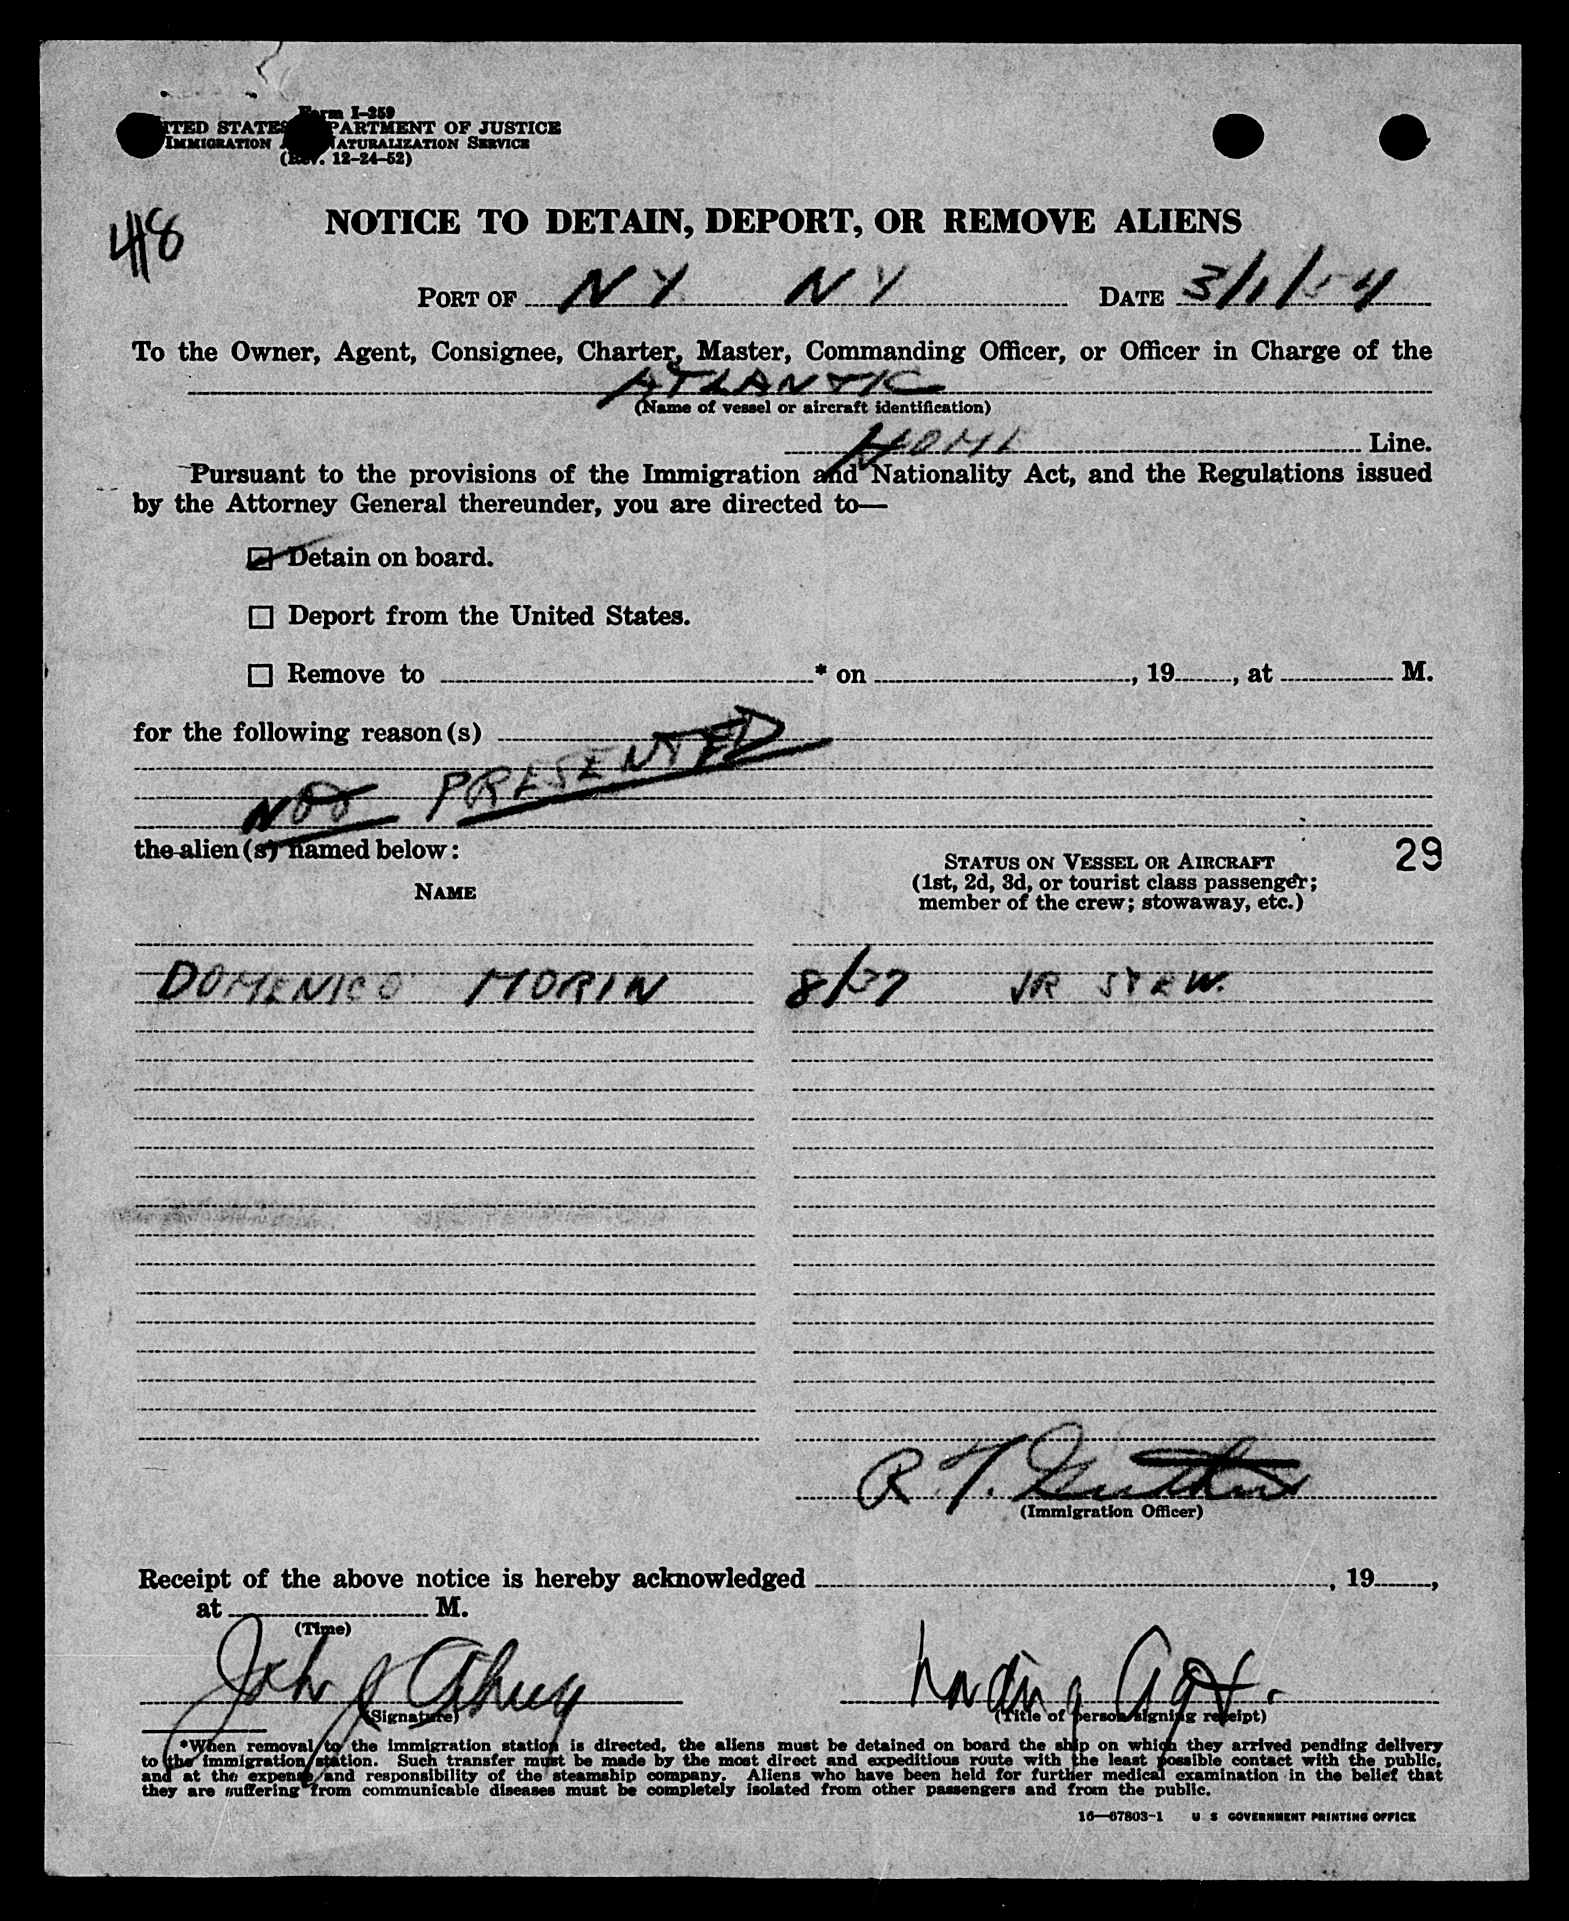 Form I-259
UNITED STATES DEPARTMENT OF JUSTICE
IMMIGRATION AND NATURALIZATION SERVICE
(Rev. 12-24-52)
418
NOTICE TO DETAIN, DEPORT, OR REMOVE ALIENS
PORT OF NY NY DATE 3/1/54
To the Owner, Agent, Consignee, Charter, Master, Commanding Officer, or Officer in Charge of the
ATLANTIC
(Name of vessel or aircraft identification)
HOME Line.
Pursuant to the provisions of the Immigration and Nationality Act, and the Regulations issued
by the Attorney General thereunder, you are directed to—
Detain on board.
Deport from the United States.
Remove to * on , 19 , at M.
for the following reason(s)
NOT PRESENTED
the alien(s) named below:
29
NAME
STATUS ON VESSEL OR AIRCRAFT
(1st, 2d, 3d, or tourist class passenger;
member of the crew; stowaway, etc.)
DOMENICO MORIN 8/37 JR STEW.
R. T.
(Immigration Officer)
Receipt of the above notice is hereby acknowledged , 19 ,
at M.
(Time)
John J Ahug
Boarding Agt.
(Signature)
(Title of person signing receipt)
*When removal to the immigration station is directed, the aliens must be detained on board the ship on which they arrived pending delivery
to the immigration station. Such transfer must be made by the most direct and expeditious route with the least possible contact with the public,
and at the expense and responsibility of the steamship company. Aliens who have been held for further medical examination in the belief that
they are suffering from communicable diseases must be completely isolated from other passengers and from the public.
16—67803-1 U S GOVERNMENT PRINTING OFFICE